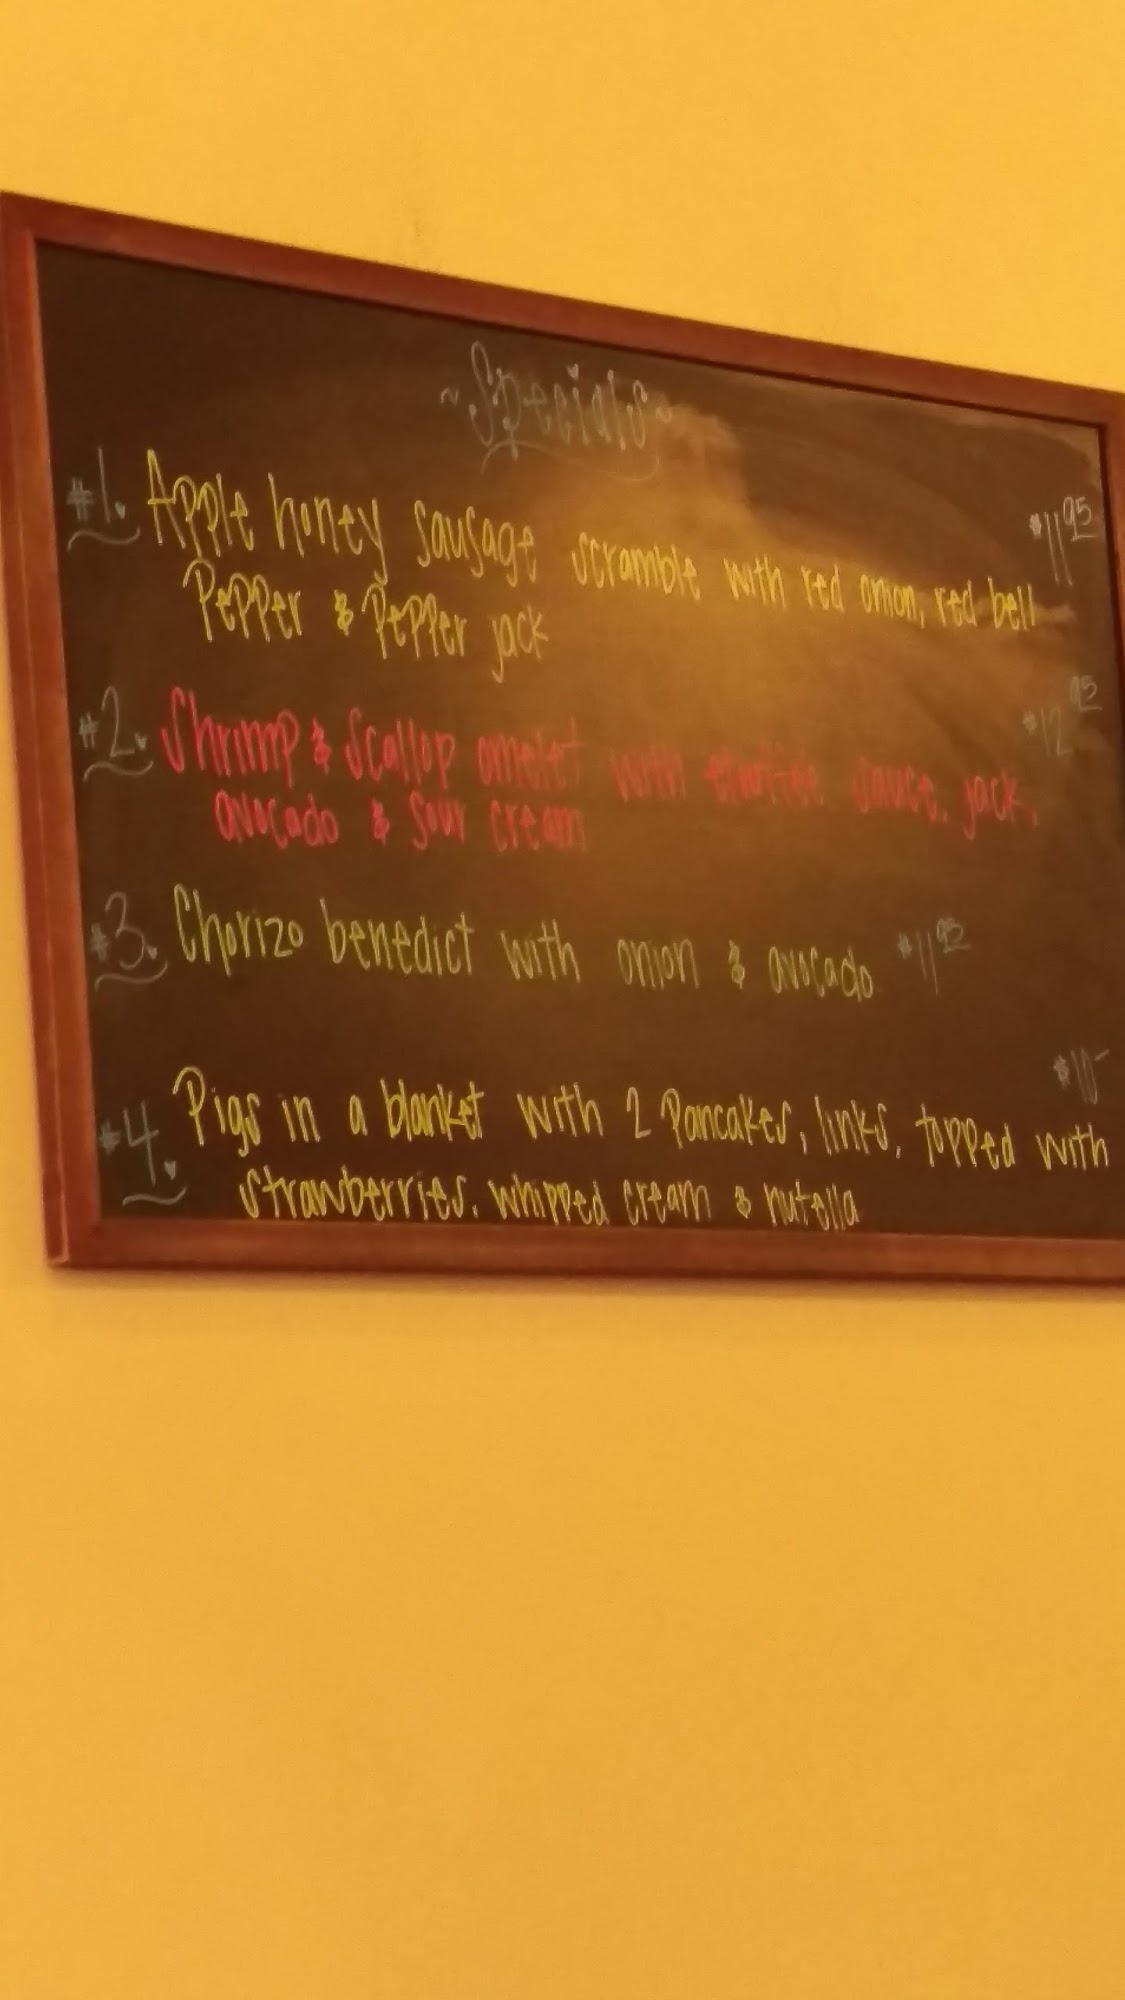 ~Specials~
#1. Apple honey sausage scramble with red onion, red bell $11.95
Pepper & Pepper jack
#2. Shrimp & Scallop omelet with sauce, jack, $12.95
avocado & sour cream
#3. Chorizo benedict with onion & avocado $11.95
#4. Pigs in a blanket with 2 Pancakes, links, topped with $10-
strawberries, whipped cream & nutella